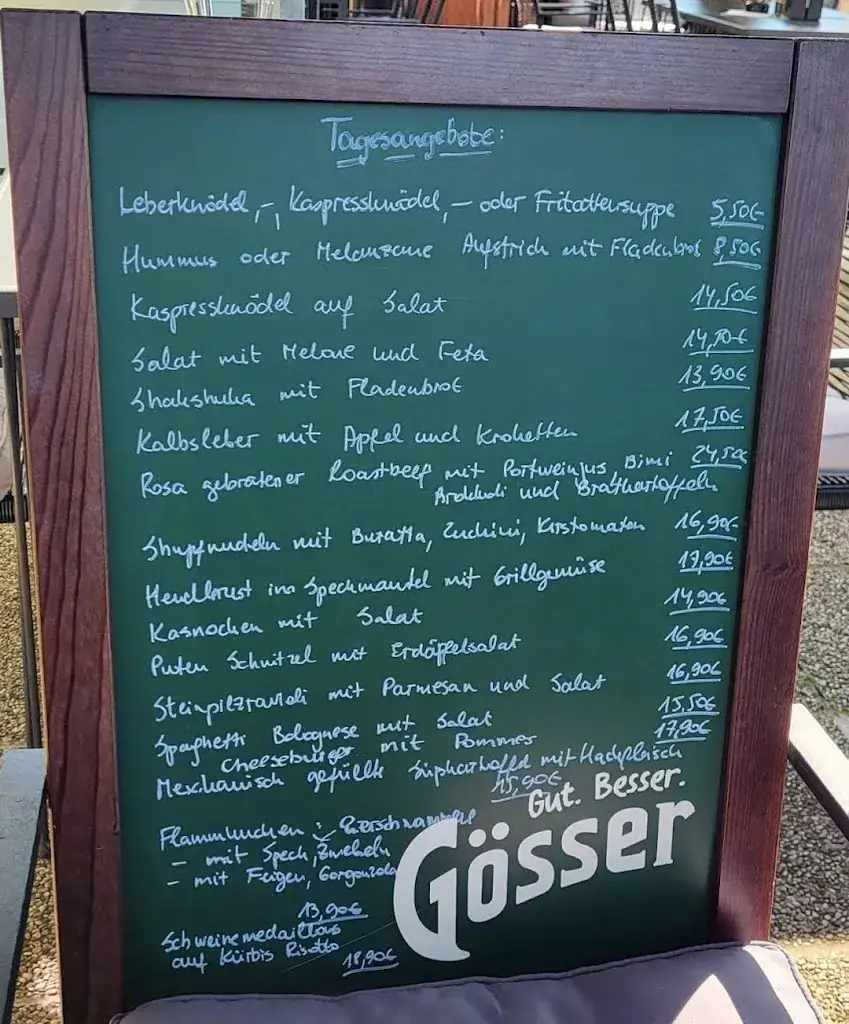 Tagesangebote:
Leberknödel,-, Kaspressknödel,- oder Fritattensuppe 5,50€
Hummus oder Melanzane Aufstrich mit Fladenbrot 8,50€
Kaspressknödel auf Salat 14,50€
Salat mit Melone und Feta 14,90€
Shakshuka mit Fladenbrot 13,90€
Kalbsleber mit Apfel und Kroketten 17,50€
Rosa gebratener Roastbeef mit Portweinjus, Bimi 24,50€
Brokkoli und Bratkartoffeln
Shupfnudeln mit Buratta, Zuchini, Kirstomaten 16,90€
Hendlbrust im Speckmantel mit Grillgemüse 17,90€
Kasnocken mit Salat 14,90€
Puten Schnitzel mit Erdäpfelsalat 16,90€
Steinpilzravioli mit Parmesan und Salat 16,90€
Spaghetti Bolognese mit Salat 15,50€
Cheeseburger mit Pommes 17,90€
Mexikanisch gefüllte Süpkartoffel mit Hackfleisch
15,90€
Flammkuchen:
- mit Speck, Zwiebeln
- mit Feigen, Gorgonzola
13,90€
Schweinemedaillons
auf Kürbis Risotto 18,90€
Gut. Besser.
Gösser